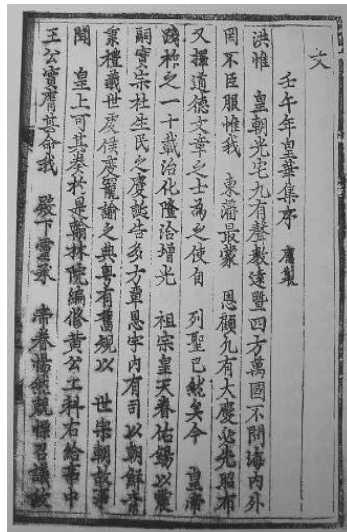 文
壬午年皇華集序 應製
洪惟 皇朝光宅九有聲教達暨四方萬國不問海內外
罔不臣服惟我 東藩最蒙 恩顧凡有大慶必先昭布
又擇道德文章之士為之使自 列聖已然矣今 皇帝
踐祚之一十載治化隆洽增光 祖宗皇天眷佑錫以震
嗣實宗社生民之慶誕告多方覃恩宇內有司以朝鮮素
秉禮義世虔侯度寵諭之典粤有舊規以 世宗朝故事
聞 皇上可其奏於是翰林院編修黃公工科右給事中
王公實膺其命我 殿下靈承 帝眷惕然兢惶召議政